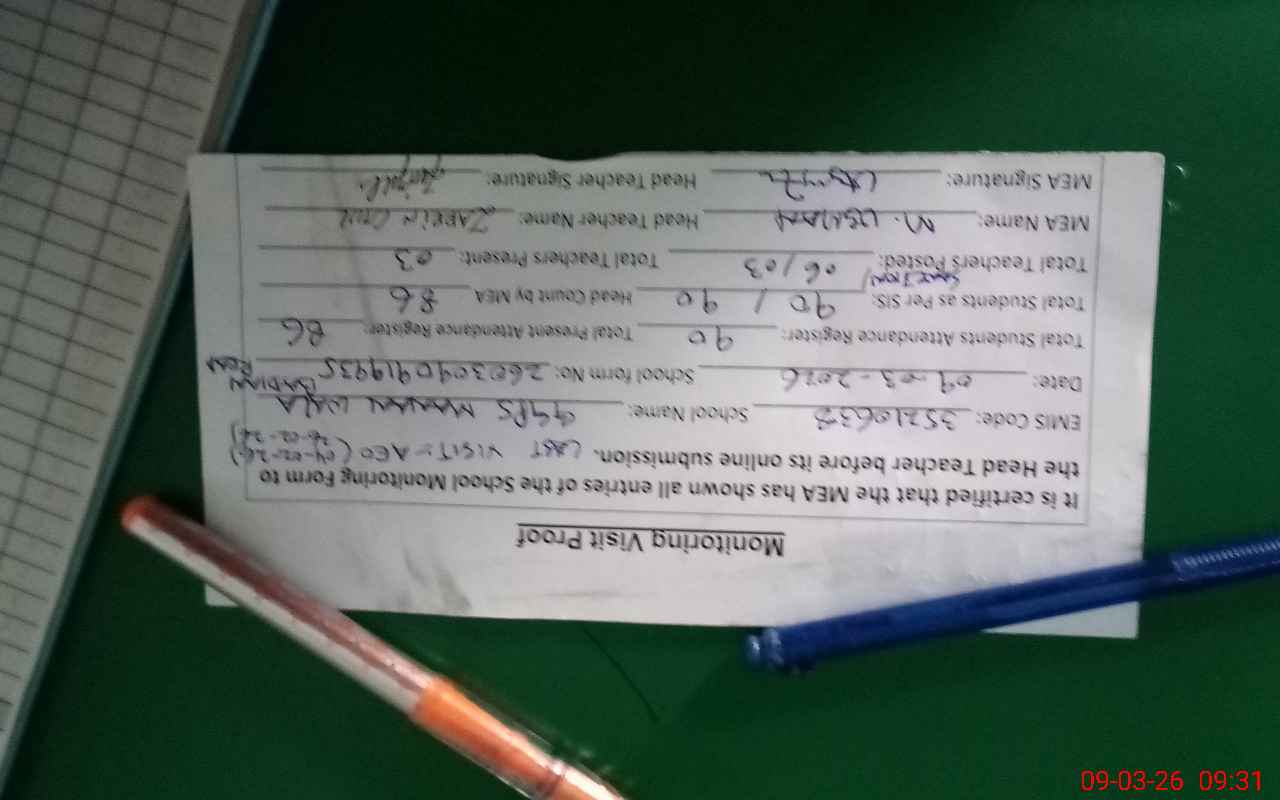 Monitoring Visit Proof
It is certified that the MEA has shown all entries of the School Monitoring Form to
the Head Teacher before its online submission. LAST VISIT = AEO (04-02-26)
26-02-26)
EMIS Code: 35210638 School Name: GGPS MANAN WALA
BADIAN ROAD
Date: 09-03-2026 School form No: 26030409419935
Total Students Attendance Register: 90 Total Present Attendance Register: 86
Total Students as Per SIS: 90 / 90 Head Count by MEA 86
Total Teachers Posted: 06/03 Total Teachers Present: 03
MEA Name: M. USMAN Head Teacher Name: ZARRIN GUL
MEA Signature: Head Teacher Signature:
09-03-26 09:31